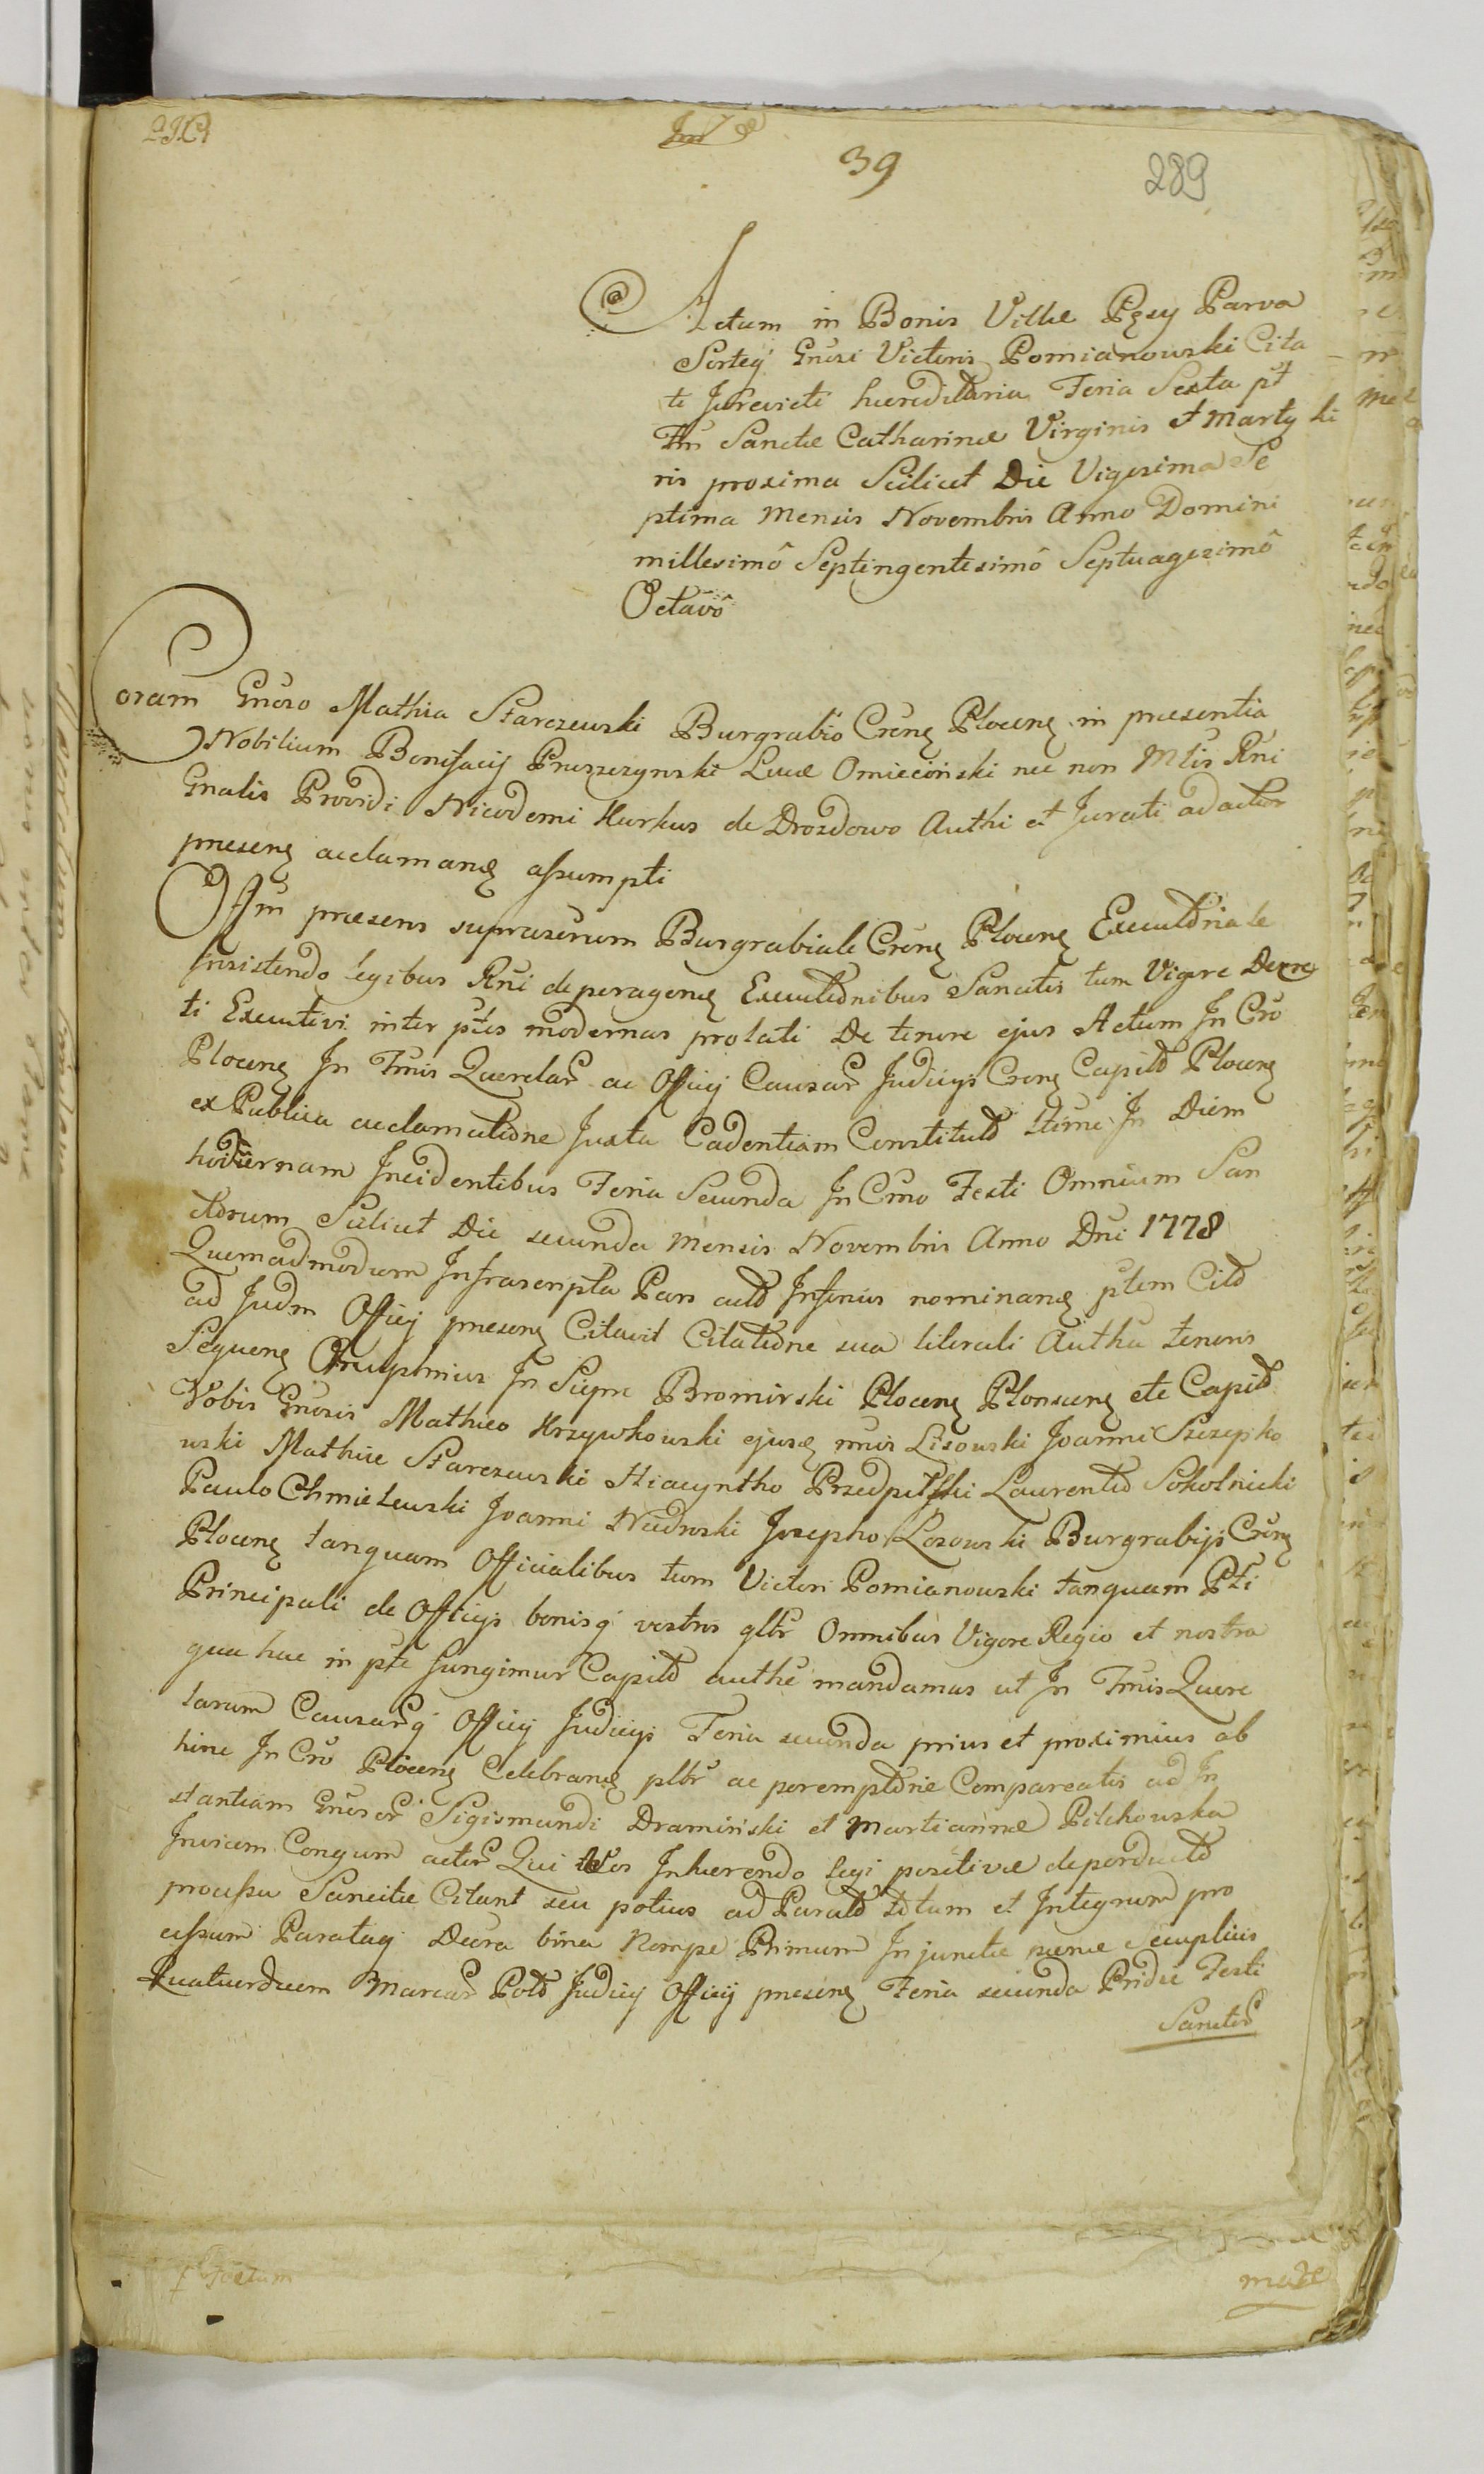 39
289
Actum in Bonis Villæ Pęsy Parva
Sorteq Gnosi Victoris Pomianowski Cita
ti Jurevicti hæreditaria Feria Sexta pt
Ftu Sanctæ Catharinæ Virginis et Marty
ris proxima Scilicet Die Vigesima Se
ptima Mensis Novembris Anno Domini
millesimô Septingentesimô Septuagesimô
Octavô
Coram Gnoso Mathia Starczewski Burgrabio Crênę Plocenę in præsentia
Nobilium Bonifacij Pruszczynski Lucæ Omieciński nec non Mlis Rni
Gnalis Providi Nicodemi Kurkus de Drozdowo Authi et Jurati ad actum
præsenę acclamanę assumpti
præsens suprascrium Burgrabiale Crênę Plocenę Executoriale
Insistendo legibus Rni de peragenę Executionibus Sancitis tum Vigore Decre
ti Executivi inter ptes modernas prolati De tenore ejus Actum In Cro
Plocenę In Tmis Querelar ac Officij Causar Judicijs Crenę Capitl Plocenę
ex Publica acclamatione Juxta Cadentiam Constitut In Diem
hodiernam Incidentibus Feria Secunda In Cmo Festi Omnium San
ctorum Scilicet Die secunda Mensis Novembris Anno Dni 1778
Quemadmodum Infrascripta Pars act Inferius nominanę ptem Cit
ad Judm Officij præsenę Citavit Citatione sua literali Autha tenoris
Sequenę In Siepre Bromirski Plocenę Plonscenę etc Capit
Vobis Gnosis Mathæo Krzywkowski ejusę Lisowski Joanni Szczepko
wski Mathiæ Starczewski Hiacyntho Przedpełski Laurentio Sokolnicki
Paulo Chmielewski Joanni Niedroski Josepho Losowski Burgrabijs Crênę
Plocenę tanquam Officialibus tum Victori Pomianowski tanquam Pti
Principali de Officijs bonisq vestris gltr Omnibus Vigore Regio et nostra
qua hac in pte fungimur Capitl authe mandamus ut In Tmis Quere
larum Causarq Officij Judicijs Feria secunda prius et proximius ab
hinc In Cro Plocenę Celebranę pltr ac peremptorie Compareatis ad In
stantiam Gnosor Sigismundi Dramiński et Martiannæ Pilchowska
Invicem Congum actor Qui Vos Inhærendo legi positivæ de perducto
processu Sancitæ Citant seu potius ad Parat totum et Integrum pro
cessum Parataq Decra bina Nempe Primum In junctæ pænæ Secuplicis
Quatuordecem Marcar Pol Judicij Officij præsenę Feria secunda Pridie Festi
Sanctor